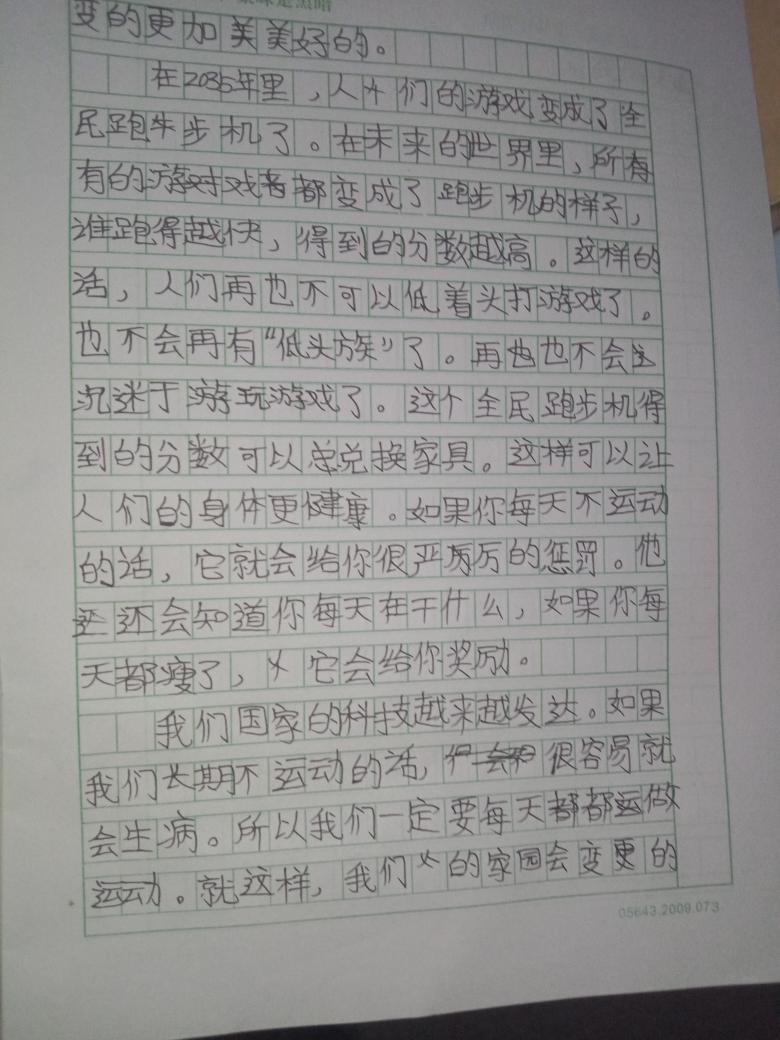 变的更加美美好的。
在2035年里，人们的游戏变成了全
民跑步机了。在未来的世界里，所有
有的游戏都变成了跑步机的样子，
谁跑得越快，得到的分数越高。这样的
话，人们再也不可以低着头打游戏了。
也不会再有“低头族”了。再也不会
沉迷于游玩游戏了。这个全民跑步机得
到的分数可以兑换家具。这样可以让
人们的身体更健康。如果你每天不运动
的话，它就会给你很严厉的惩罚。他
还会知道你每天在干什么，如果你每
天都瘦了，它会给你奖励。
我们国家的科技越来越发达。如果
我们长期不运动的话，很容易就
会生病。所以我们一定要每天都做
运动。就这样，我们的家园会变更的
05643.2009.073